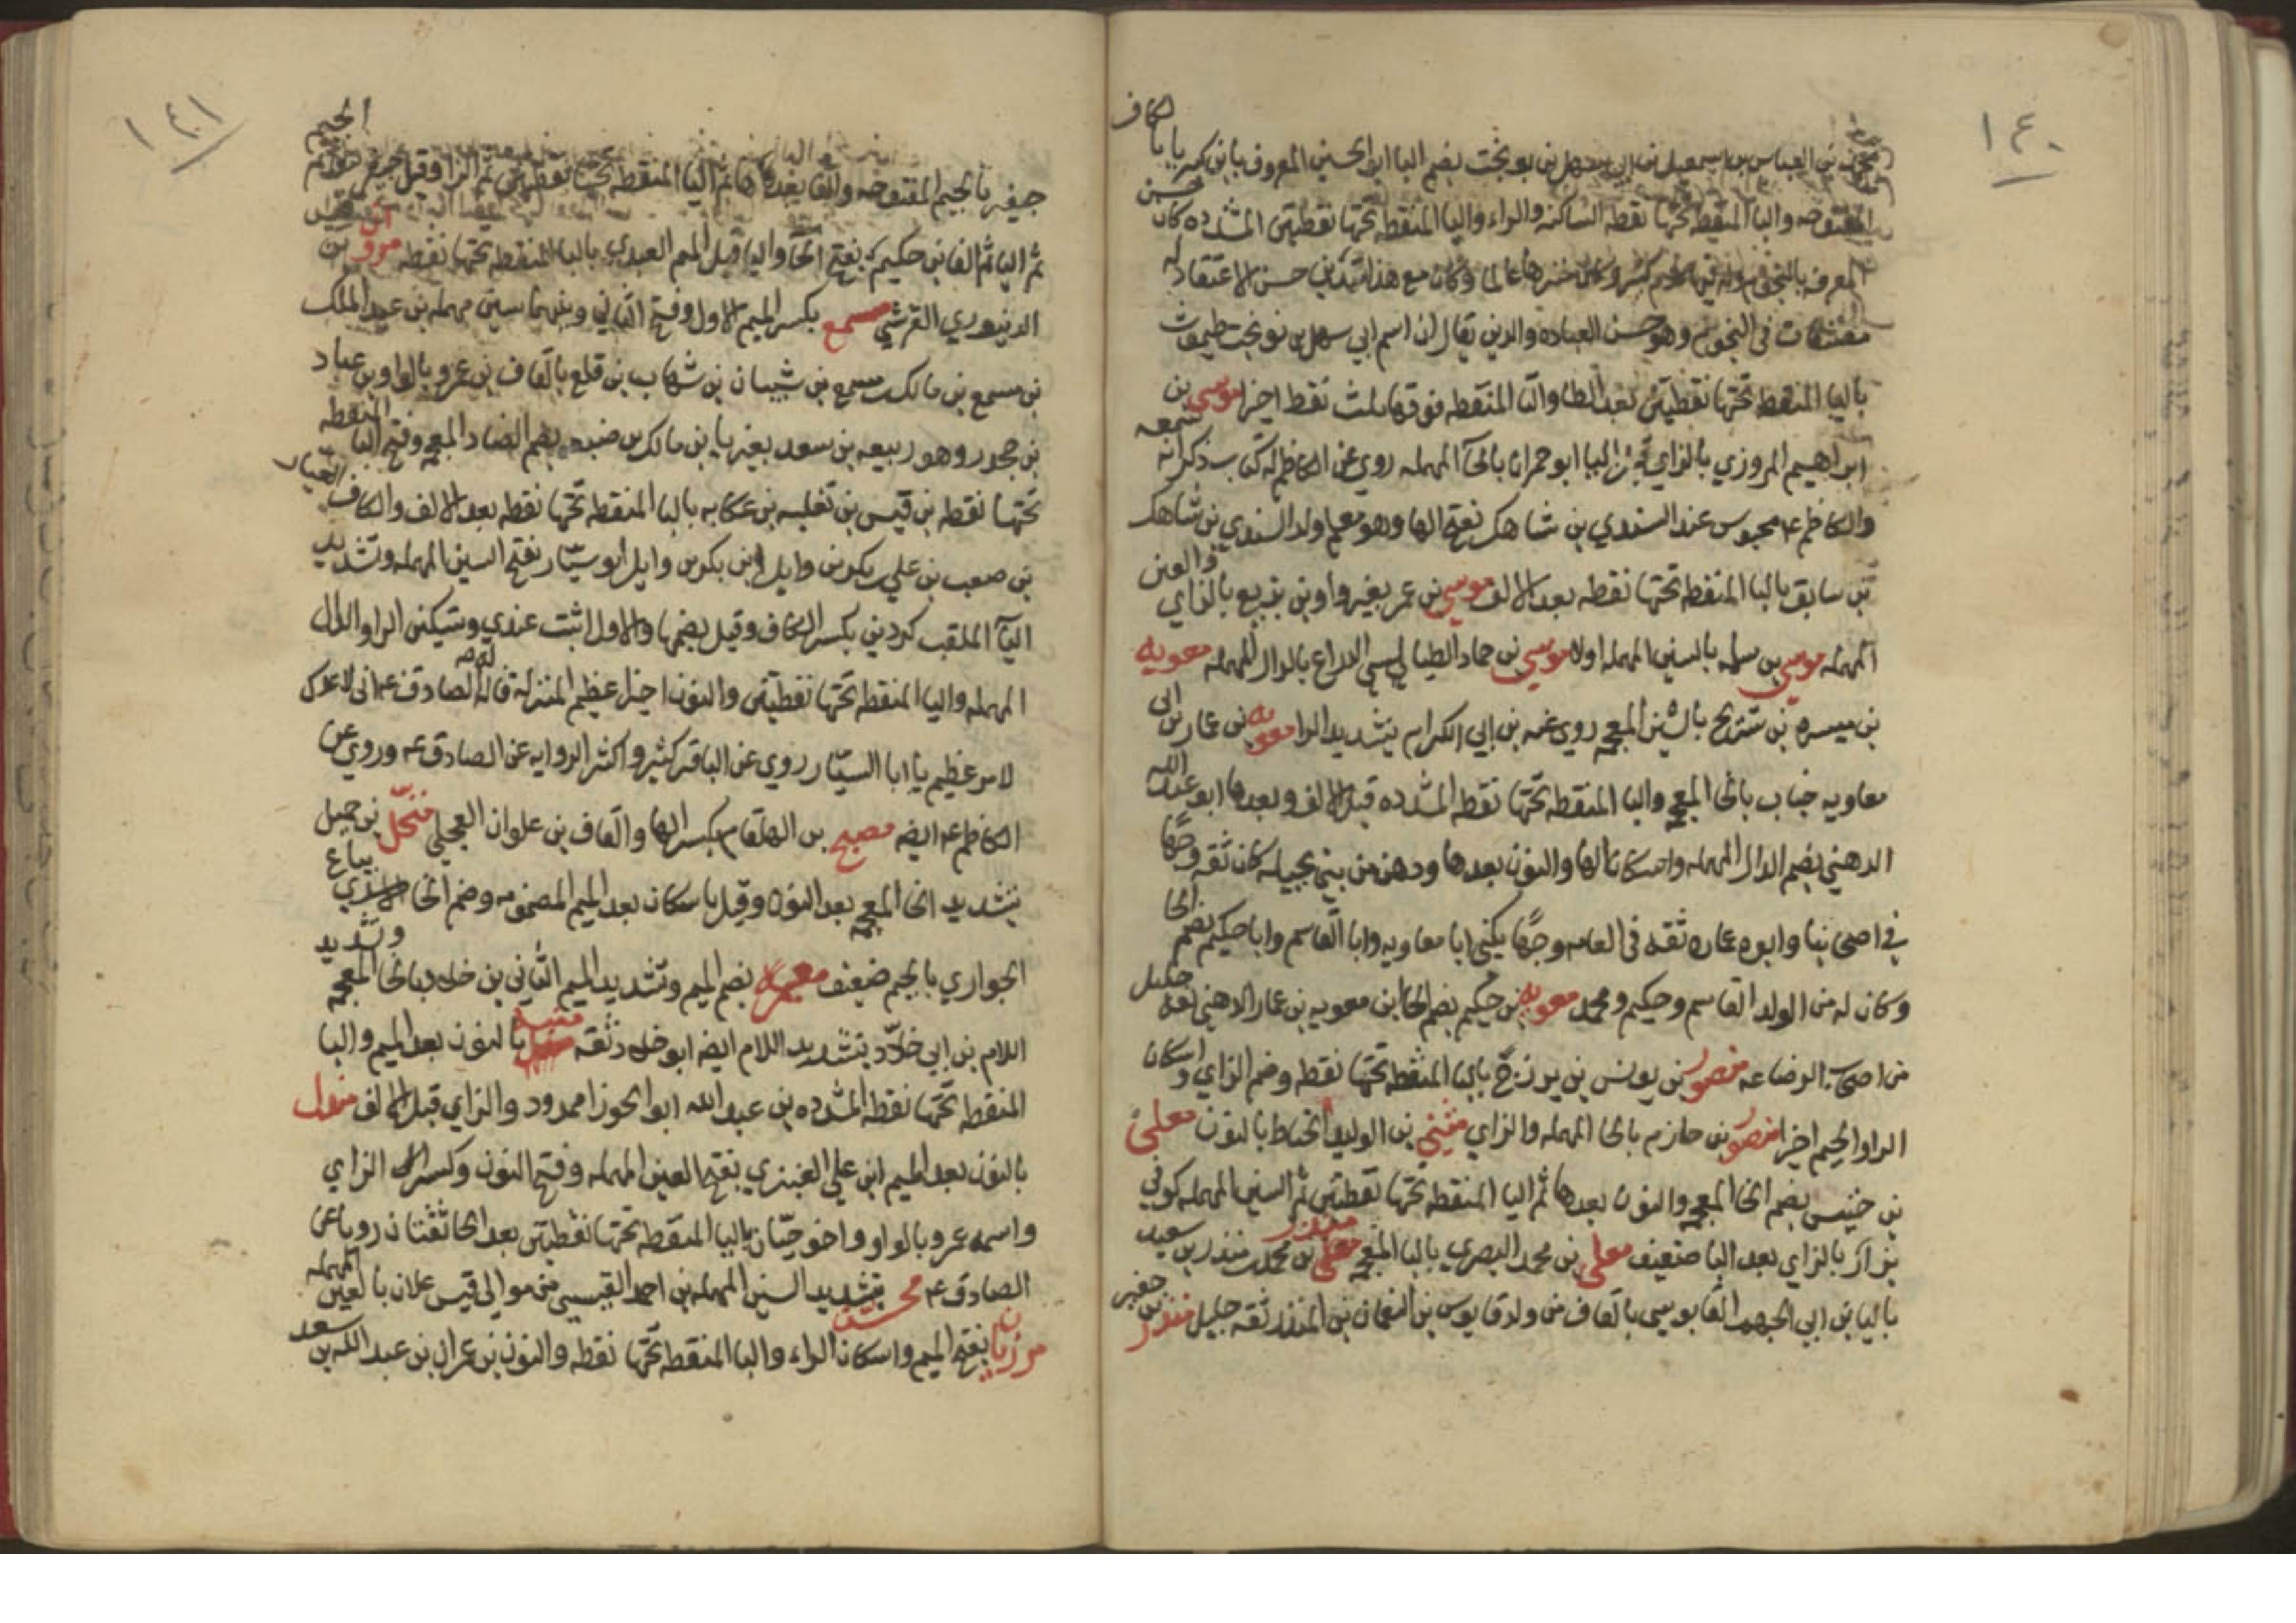 ١٤٠
الكاف
بن العباس بن اسمعيل بن ابي سهل بن نوبخت بضم البا ابو الحسين المعروف بابن كبريا با
المفتوحه والبا المنقطه تحتها نقطه الساكنه والراء واليا المنقطه تحتها نقطتين المشدده كان حسن
المعرفه بالنجوم وله فيها كلام كثير وكان عالما وكان مع هذا يتدين حسن الاعتقاد له
مصنفات في النجوم وهو حسن العباده والدين يقال ان اسم ابي سهل بن نوبخت طيماث
باليا المنقطه تحتها نقطتين بعد الطا والثا المنقطه فوقها ثلث نقط اخرا موسى بن
ابراهيم المروزي بالزاي اليا ابو حمران بالحآ المهمله روي عن الكاظم له كتاب ذكر انه سمعه
والكاظم ع محبوس عند السندي بن شاهك بفتح الها وهو معلم ولد السندي بن شاهك
بن سابق بالبا المنقطه تحتها نقطه بعد الالف موسى بن عمر بغير واو بن بزيع بالزاي والعين
المهمله موسى بن سلمه بالسين المهمله اولا موسى بن حماد الطيالسي الدراع بالدال المهمله معويه
بن ميسره بن شريح بالشين المعجمه روي عنه بن ابي الكرام بتشديد الرا معويه بن عمار بن ابي
معاويه خباب بالخا المعجمه والبا المنقطه تحتها نقطه المشدده قبل الالف وبعدها ابو عبد الله
الدهني بضم الدال المهمله واسكان الها والنون بعدها ودهن من بني بجيله كان ثقه وجها
في اصحابنا وابوه عمار ثقه في العامه وجها يكنى ابا معاويه وابا القاسم وابا حكيم بضم الحا
وكان له من الولد القاسم وحكيم ومحمد معويه بن حكيم بضم الحا بن معويه بن عمار الدهني ثقه جليل
من اصحاب الرضا ع منصور بن يونس بن بزرج بالبا المنقطه تحتها نقطه وضم الزاي واسكان
الرا والجيم اخرا منصور بن حازم بالحا المهمله والزاي مثنى بن الوليد الحناط بالنون معلى
بن خنيس بضم الخا المعجمه والنون بعدها ثم اليا المنقطه تحتها نقطتين ثم السين المهمله كوفي
بزاز بالزاي بعد البا ضعيف معلى بن محمد البصري بالبا منذر بن محمد بن منذر بن سعيد
باليا بن ابي الجهم القابوسي بالقاف من ولد قابوس بن النعمان بن المنذر ثقه جليل منذر بن جفير
١٤١
الجيم
جيفر بالجيم المفتوحه والفا بعدها ثم اليا المنقطه تحتها نقطتين ثم الرا وقيل جيفر
ثم اليا ثم الفا بن حكيم بفتح الحآ واليا قبل الميم العبدي بالبا المنقطه تحتها نقطه مروك بن
الدينوري القرشي مسمع بكسر الميم الاول وفتح الثاني وبينهما سين مهمله بن عبد الملك
بن مسمع بن مالك بن مسمع بن شيبان بن شهاب بن قلع بالقاف بن عمرو بالواو بن عباد
بن جحدر وهو ربيعه بن سعد بغير يا بن مالك بن ضبيعه بضم الضاد المعجمه وفتح البا المنقطه
تحتها نقطه بن قيس بن ثعلبه بن عكابه بالبا المنقطه تحتها نقطه بعد الالف والكاف
بن صعب بن علي بن بكر بن وايل ابو سيار بفتح السين المهمله وتشديد
اليآ الملقب كردين بكسر الكاف وقيل بضمها والاول اثبت عندي وتسكين الرا والدال
المهمله واليا المنقطه تحتها نقطتين والنون اخرا عظيم المنزله قال له الصادق ع اني لاعدك
لامر عظيم يا ابا السيار روي عن الباقر كثير واكثر الروايه عن الصادق ع وروي عن
الكاظم ع ايضه مصبح بن الهلقام بكسر الها والقاف بن علوان العجلي منخل بن جميل
بتشديد الخا المعجمه بعد النون وقيل باسكان بعد الميم المضمومه وضم الخا الاسدي بياع
الجواري بالجيم ضعيف معمر بضم الميم وتشديد الميم الثاني بن خلاد بالخا المعجمه وتشديد
اللام بن ابي خلاد بتشديد اللام ايضه ابو خلاد ثقه منبه بالنون بعد الميم والبا
المنقطه تحتها نقطه المشدده بن عبد الله ابو الجوزا ممدود والزاي قبل الالف مندل
بالنون بعد الميم ابن علي العنزي بفتح العين المهمله وفتح النون وكسر الزاي
واسمه عمرو بالواو واخو حيان باليا المنقطه تحتها نقطتين بعد الحا ثقتان رويا عن
الصادق ع محسن بتشديد السين المهمله بن احمد القيسي من موالي قيس علان بالعين المهمله
مرزبان بفتح الميم واسكان الراء والبا المنقطه تحتها نقطه والنون بن عمران بن عبد الله بن سعد